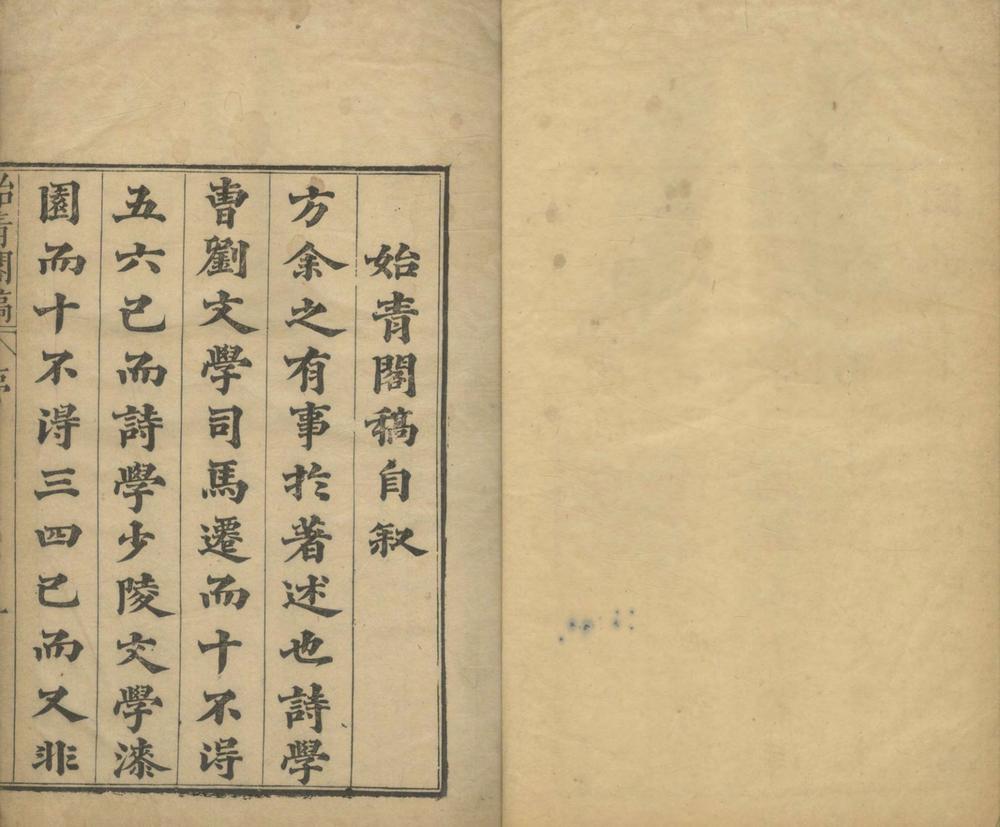 始青閣稿自叙
方余之有事扵著述也詩學
曹劉文學司馬遷而十不淂
五六已而詩學少陵文學漆
園而十不淂三四已而又非
始青閣稿 序